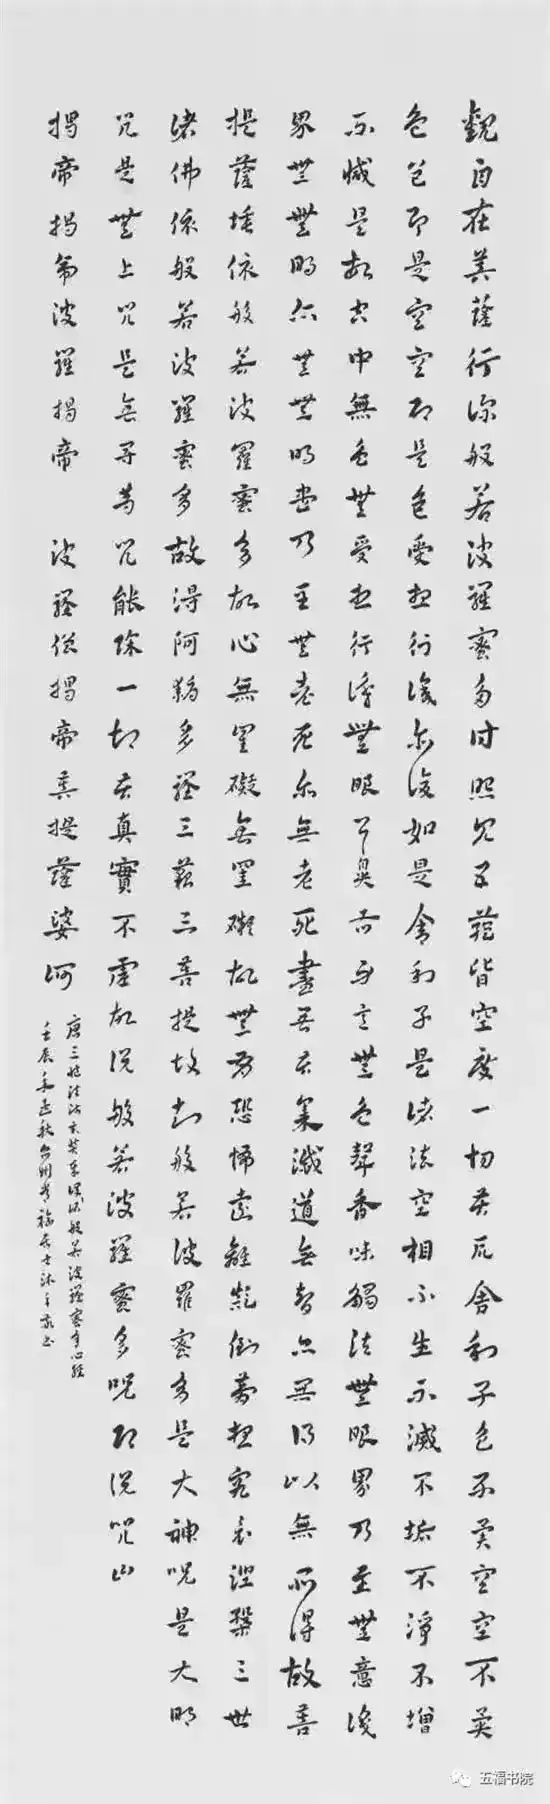 觀自在菩薩行深般若波羅蜜多時照見五蘊皆空度一切苦厄舍利子色不異空空不異
色色即是空空即是色受想行識亦復如是舍利子是諸法空相不生不滅不垢不淨不增
不減是故空中無色無受想行識無眼耳鼻舌身意無色聲香味觸法無眼界乃至無意識
界無無明亦無無明盡乃至無老死亦無老死盡無苦集滅道無智亦無得以無所得故菩
提薩埵依般若波羅蜜多故心無罣礙無罣礙故無有恐怖遠離顛倒夢想究竟涅槃三世
諸佛依般若波羅蜜多故得阿耨多羅三藐三菩提故知般若波羅蜜多是大神咒是大明
咒是無上咒是無等等咒能除一切苦真實不虛故說般若波羅蜜多呪即說咒曰
揭帝揭帝波羅揭帝 波羅僧揭帝菩提薩婆訶
唐三藏法師玄奘奉詔譯般若波羅蜜多心經
壬辰年孟秋台州居士沐手敬書
五福书院